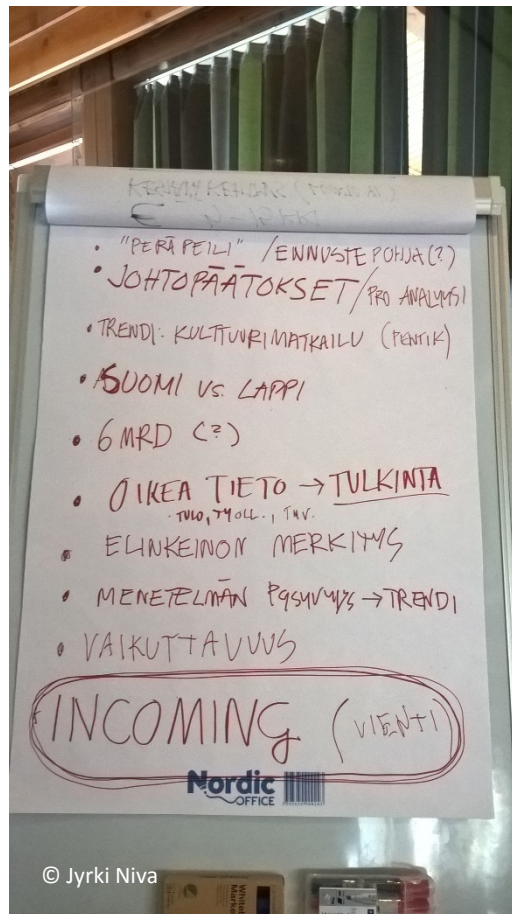 €
• "PERÄPEILI" / ENNUSTE POHJA (?)
• JOHTOPÄÄTÖKSET / PRO ANALYYSI
• TRENDI: KULTTUURIMATKAILU (PENTIK)
• SUOMI vs. LAPPI
• 6 MRD (?)
• OIKEA TIETO → TULKINTA
TULO, TYÖLL.,
• ELINKEINON MERKITYS
• MENETELMÄN PYSYVYYS → TRENDI
• VAIKUTTAVUUS
INCOMING (VIENTI)
Nordic
OFFICE
© Jyrki Niva